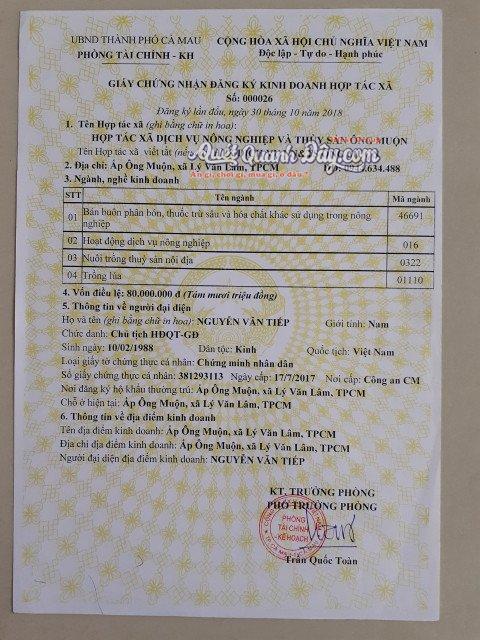 UBND THÀNH PHỐ CÀ MAU
PHÒNG TÀI CHÍNH - KH
CỘNG HÒA XÃ HỘI CHỦ NGHĨA VIỆT NAM
Độc lập - Tự do - Hạnh phúc
GIẤY CHỨNG NHẬN ĐĂNG KÝ KINH DOANH HỢP TÁC XÃ
Số: 000026
Đăng ký lần đầu, ngày 30 tháng 10 năm 2018
1. Tên Hợp tác xã (ghi bằng chữ in hoa):
HỢP TÁC XÃ DỊCH VỤ NÔNG NGHIỆP VÀ THỦY SẢN ÔNG MUỘN
Tên Hợp tác xã viết tắt
QuétQuanhĐây.com
2. Địa chỉ: Ấp Ông Muộn, xã Lý Văn Lâm, TPCM
.634.488
Ăn gì, chơi gì, mua gì, ở đâu."
3. Ngành, nghề kinh doanh
STT Tên ngành Mã ngành
01 Bán buôn phân bón, thuốc trừ sâu và hóa chất khác sử dụng trong nông nghiệp 46691
02 Hoạt động dịch vụ nông nghiệp 016
03 Nuôi trồng thuỷ sản nội địa 0322
04 Trồng lúa 01110
4. Vốn điều lệ: 80.000.000 đ (Tám mươi triệu đồng)
5. Thông tin về người đại diện
Họ và tên (ghi bằng chữ in hoa): NGUYỄN VĂN TIẾP Giới tính: Nam
Chức danh: Chủ tịch HĐQT-GĐ
Sinh ngày: 10/02/1988 Dân tộc: Kinh Quốc tịch: Việt Nam
Loại giấy tờ chứng thực cá nhân: Chứng minh nhân dân
Số giấy chứng thực cá nhân: 381293113 Ngày cấp: 17/7/2017 Nơi cấp: Công an CM
Nơi đăng ký hộ khẩu thường trú: Ấp Ông Muộn, xã Lý Văn Lâm, TPCM
Chỗ ở hiện tại: Ấp Ông Muộn, xã Lý Văn Lâm, TPCM
6. Thông tin về địa điểm kinh doanh
Tên địa điểm kinh doanh: Ấp Ông Muộn, xã Lý Văn Lâm, TPCM
Địa chỉ địa điểm kinh doanh: Ấp Ông Muộn, xã Lý Văn Lâm, TPCM
Người đại diện địa điểm kinh doanh: NGUYỄN VĂN TIẾP
KT. TRƯỞNG PHÒNG
PHÓ TRƯỞNG PHÒNG
PHÒNG
TÀI CHÍNH
KẾ HOẠCH
Trần Quốc Toàn